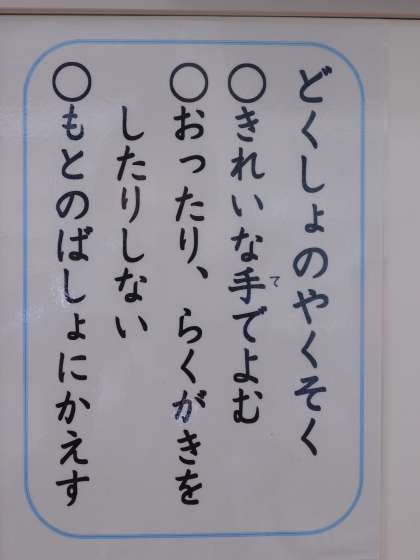 どくしょのやくそく
○きれいな手でよむ
て
○おったり、らくがきを
したりしない
○もとのばしょにかえす